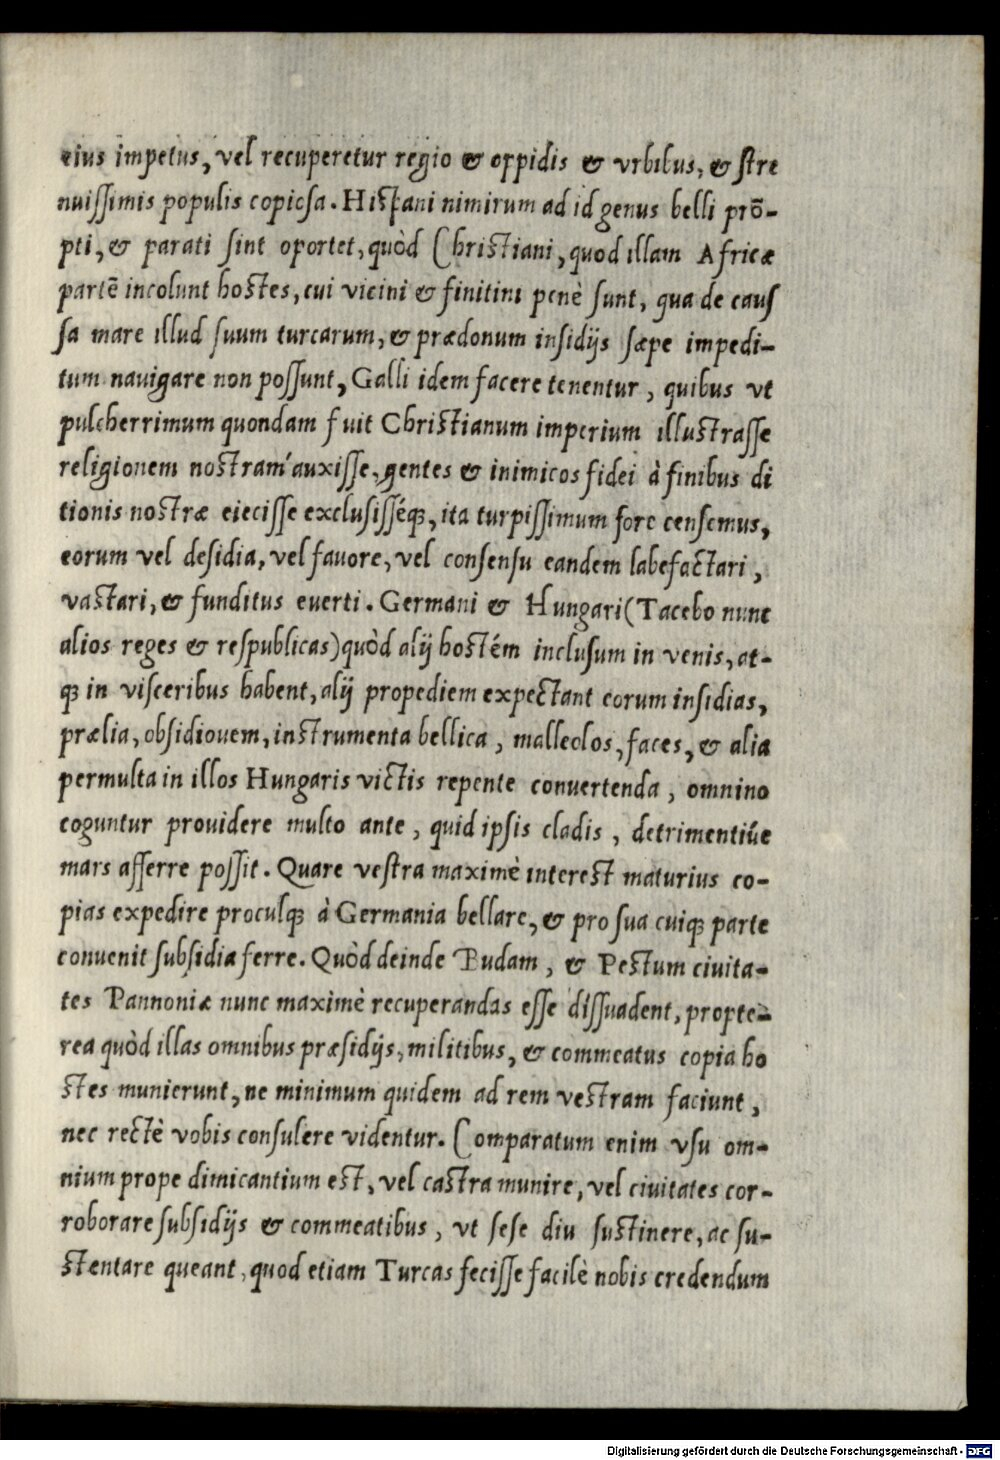 eius impetus, vel recuperetur regio & oppidis & vrbibus, & stre
nuissimis populis copiosa. Hispani nimirum ad id genus belli prõ-
pti, & parati sint oportet, quòd Christiani, quod illam Africæ
partẽ incolunt hostes, cui vicini & finitimi penè sunt, qua de caus
sa mare illud suum turcarum, & prædonum insidijs sæpe impedi-
tum nauigare non possunt, Galli idem facere tenentur, quibus vt
pulcherrimum quondam fuit Christianum imperium illustrasse
religionem nostram auxisse, gentes & inimicos fidei à finibus di
tionis nostræ eiecisse exclusisséq;, ita turpissimum fore censemus,
eorum vel desidia, vel fauore, vel consensu eandem labefactari,
vastari, & funditus euerti. Germani & Hungari (Tacebo nunc
alios reges & respublicas) quòd alij hostém inclusum in venis, at-
q; in visceribus habent, alij propediem expectant eorum insidias,
prælia, obsidiouem, instrumenta bellica, malleolos, faces, & alia
permulta in illos Hungaris victis repente conuertenda, omnino
coguntur prouidere multo ante, quid ipsis cladis, detrimentiúe
mars afferre possit. Quare vestra maximè interest maturius co-
pias expedire proculq; à Germania bellare, & pro sua cuiq; parte
conuenit subsidia ferre. Quòd deinde Budam, & Pestum ciuita-
tes Pannoniæ nunc maximè recuperandas esse dissuadent, propte-
rea quòd illas omnibus præsidijs, militibus, & commeatus copia ho
stes munierunt, ne minimum quidem ad rem vestram faciunt,
nec rectè vobis consulere videntur. Comparatum enim vsu om-
nium prope dimicantium est, vel castra munire, vel ciuitates cor-
roborare subsidijs & commeatibus, vt sese diu sustinere, ac su-
stentare queant, quod etiam Turcas fecisse facilè nobis credendum
Digitalisierung gefördert durch die Deutsche Forschungsgemeinschaft - DFG